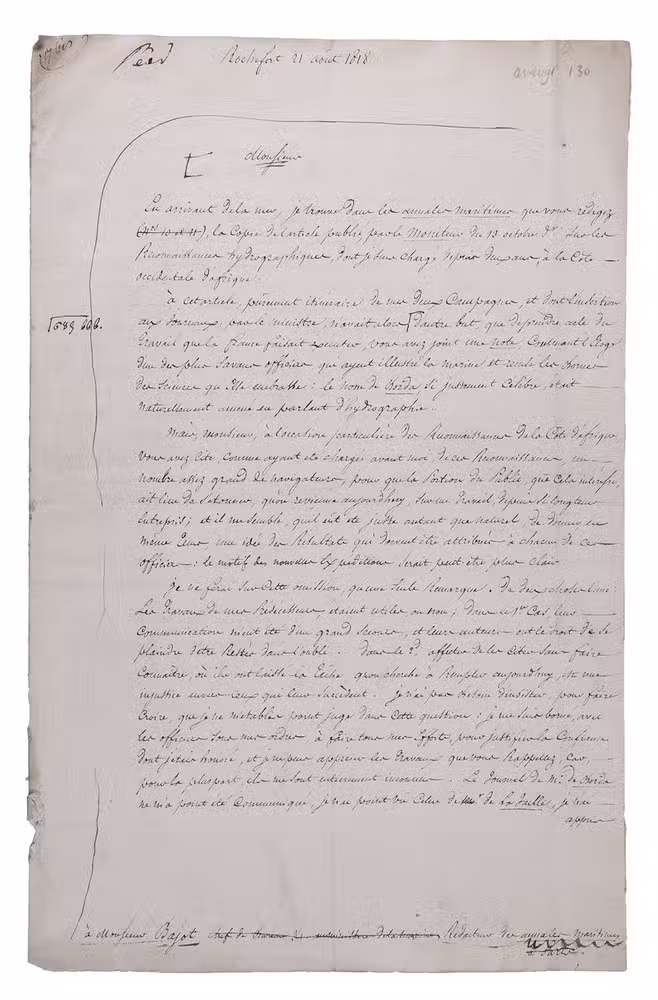 Rochefort 21 août 1818
130
Monsieur
En arrivant de la mer, je trouve dans les annales maritimes que vous rédigez
(Nos 10 et 11), la Copie de l'article publié par le Moniteur du 13 octobre dr. Sur les
Reconnaissances hydrographiques, dont je suis chargé depuis deux ans, à la Côte
occidentale d'afrique.
à cet article, purement itinéraire de mes deux Campagnes, et dont l'insertion
aux Journaux, par le ministre, n'avait alors d'autre but, que de prendre acte du
travail que la france faisait exécuter, vous avez joint une note, Contenant l'Eloge
d'un des plus Savans officiers qui ayent illustré la marine et reculé les bornes
des Sciences qu'Elle embrasse : le nom de Borda Si justement Célèbre, était
naturellement amené en parlant d'hydrographie.
Mais, monsieur, à l'occasion particulière des Reconnaissances de la Côte d'afrique
vous avez Cité, Comme ayant été chargés avant moi, de ces Reconnaissances, un
nombre assez grand de navigateurs, pour que la Portion du Public, que Cela intéresse,
ait lieu de S'étonner, qu'on revienne aujourdhuy, Sur un travail, depuis Si longtems
Entrepris ; et il me Semble, qu'il eût été juste autant que naturel, de donner en
même tems, une idée des Résultats qui doivent être attribués à chacun de ces
officiers : le motif des nouvelles Expéditions Serait peut être plus Clair.
je ne ferai Sur Cette omission, qu'une Seule Remarque. De deux choses l'une :
Les travaux de mes Prédécesseurs, étaient utiles ou non ; dans le 1er Cas, leur
Communication m'eut été d'un grand Secours, et leurs auteurs ont le droit de se
plaindre d'être Restés dans l'oubli. dans le 2d. affecter de les Citer Sans faire
Connaître, où ils ont laissé la tâche qu'on cherche à Remplir aujourdhuy, est une
injustice envers ceux qui leur Succèdent. je n'ai pas besoin d'insister, pour faire
Croire, que je ne m'établis point juge dans Cette question : je me Suis borné, avec
les officiers Sous mes ordres à faire tous mes Efforts, pour justifier la Confiance
dont j'étais honoré, et je n'ai pu apprécier les travaux que vous Rappellez, car,
pour la pluspart, ils me Sont entièrement inconnus. Le Journal de Mr. de Borda
ne m'a point été Communiqué, je n'ai point vu Celui de Mr. de La Jaille, je n'ai
appris
à Monsieur Bajot chef de bureau au ministère de la marine, Rédacteur des annales maritimes
à Paris.